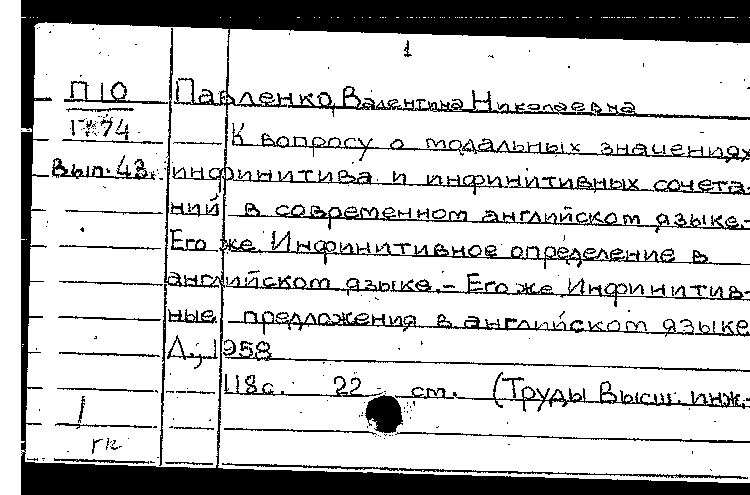 1
П10 Павленко, Валентина Николаевна
К вопросу о модальных значениях
Вып. 43. инфинитива и инфинитивных сочета-
ний в современном английском языке.-
Его же Инфинитивное определение в
английском языке.- Его же Инфинитив-
ные предложения в английском языке
Л., 1958
118с. 22 см. (Труды Высш. инж.-
гк